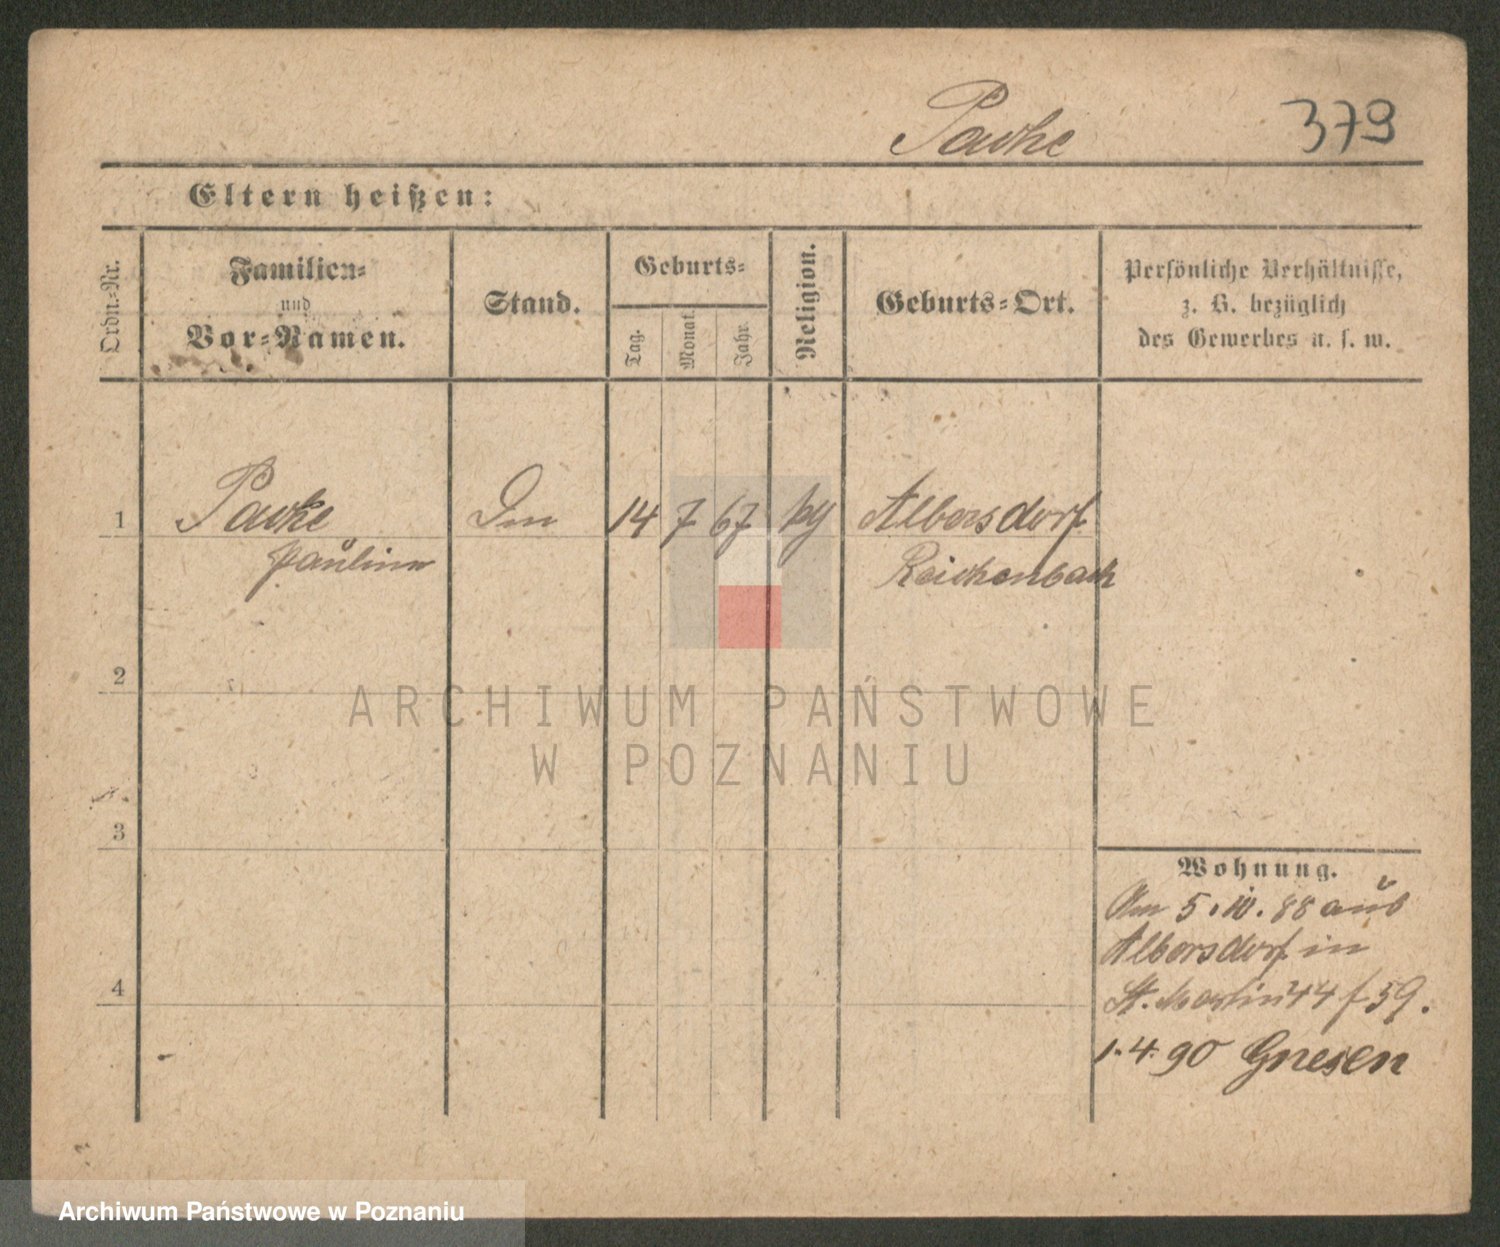 379
Eltern heißen:
Ordn.-Nr.
Familien-
und
Vor-Namen.
Stand.
Geburts-
Tag.
Monat.
Jahr.
Religion.
Geburts-Ort.
Persönliche Verhältnisse,
z. B. bezüglich
des Gewerbes u. s. w.
1
14 7 67
Albersdorf
Paulina
Reichenbach
2
ARCHIWUM PAŃSTWOWE
W POZNANIU
3
Wohnung.
Am 5. 10. 88 aus
Albersdorf in
St. Martin 44 f 59.
4
1. 4. 90 Gnesen
Archiwum Państwowe w Poznaniu